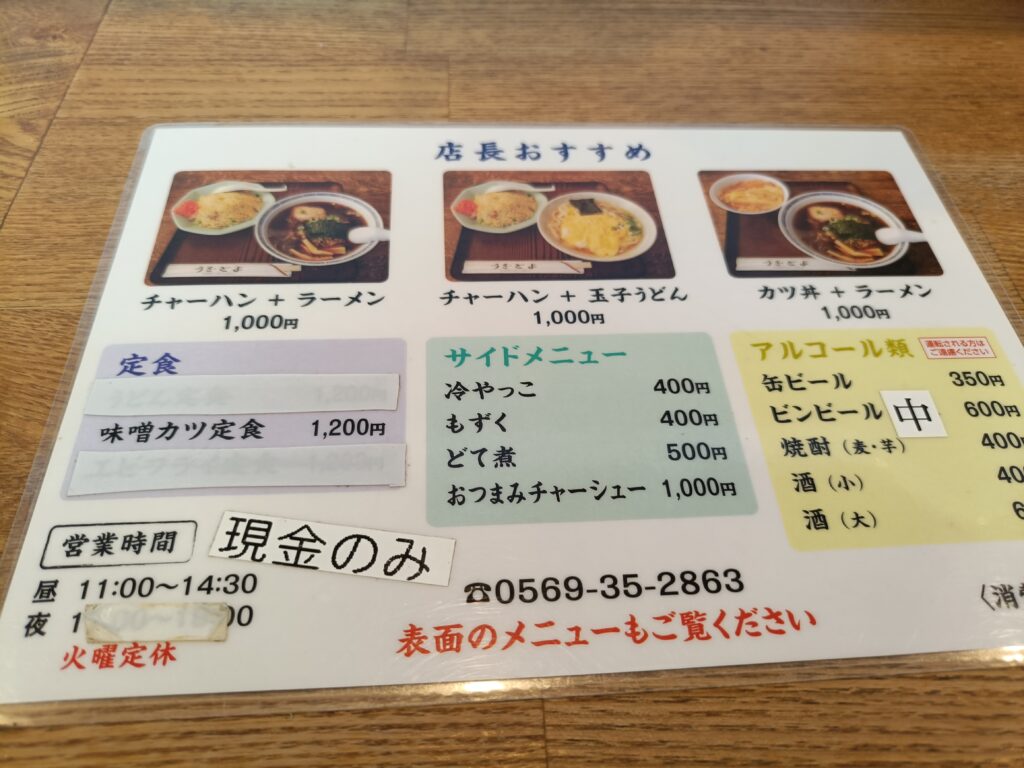 店長おすすめ
チャーハン + ラーメン
1,000円
チャーハン + 玉子うどん
1,000円
カツ丼 + ラーメン
1,000円
定食
1,200円
味噌カツ定食 1,200円
エビフライ定食 1,200円
サイドメニュー
冷やっこ 400円
もずく 400円
どて煮 500円
おつまみチャーシュー 1,000円
アルコール類
運転される方は
ご遠慮ください
缶ビール 350円
ビンビール 中 600円
焼酎(麦・芋) 400
酒(小) 40
酒(大) 6
営業時間
現金のみ
昼 11:00〜14:30
夜 1
火曜定休
☎0569-35-2863
表面のメニューもご覧ください
〈消